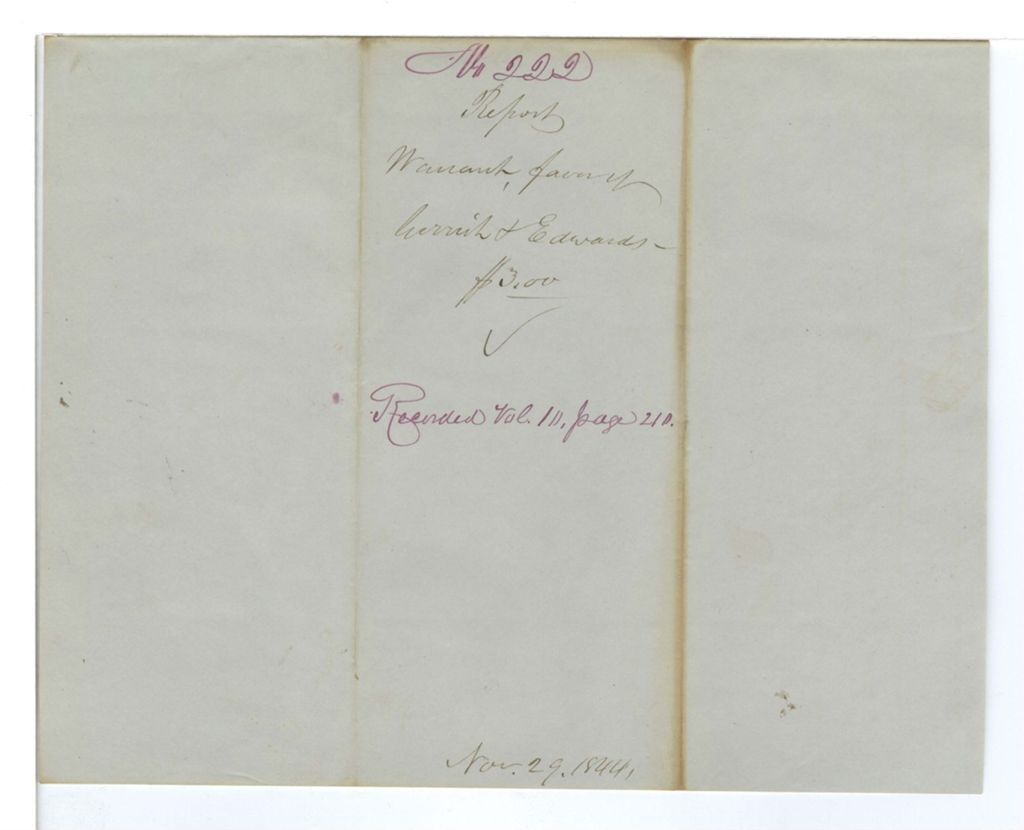 No 222
Report
Warrant, favor of
Gerrish & Edwards -
$3.00
Recorded Vol. 10, page 210.
Nov. 29. 1844,